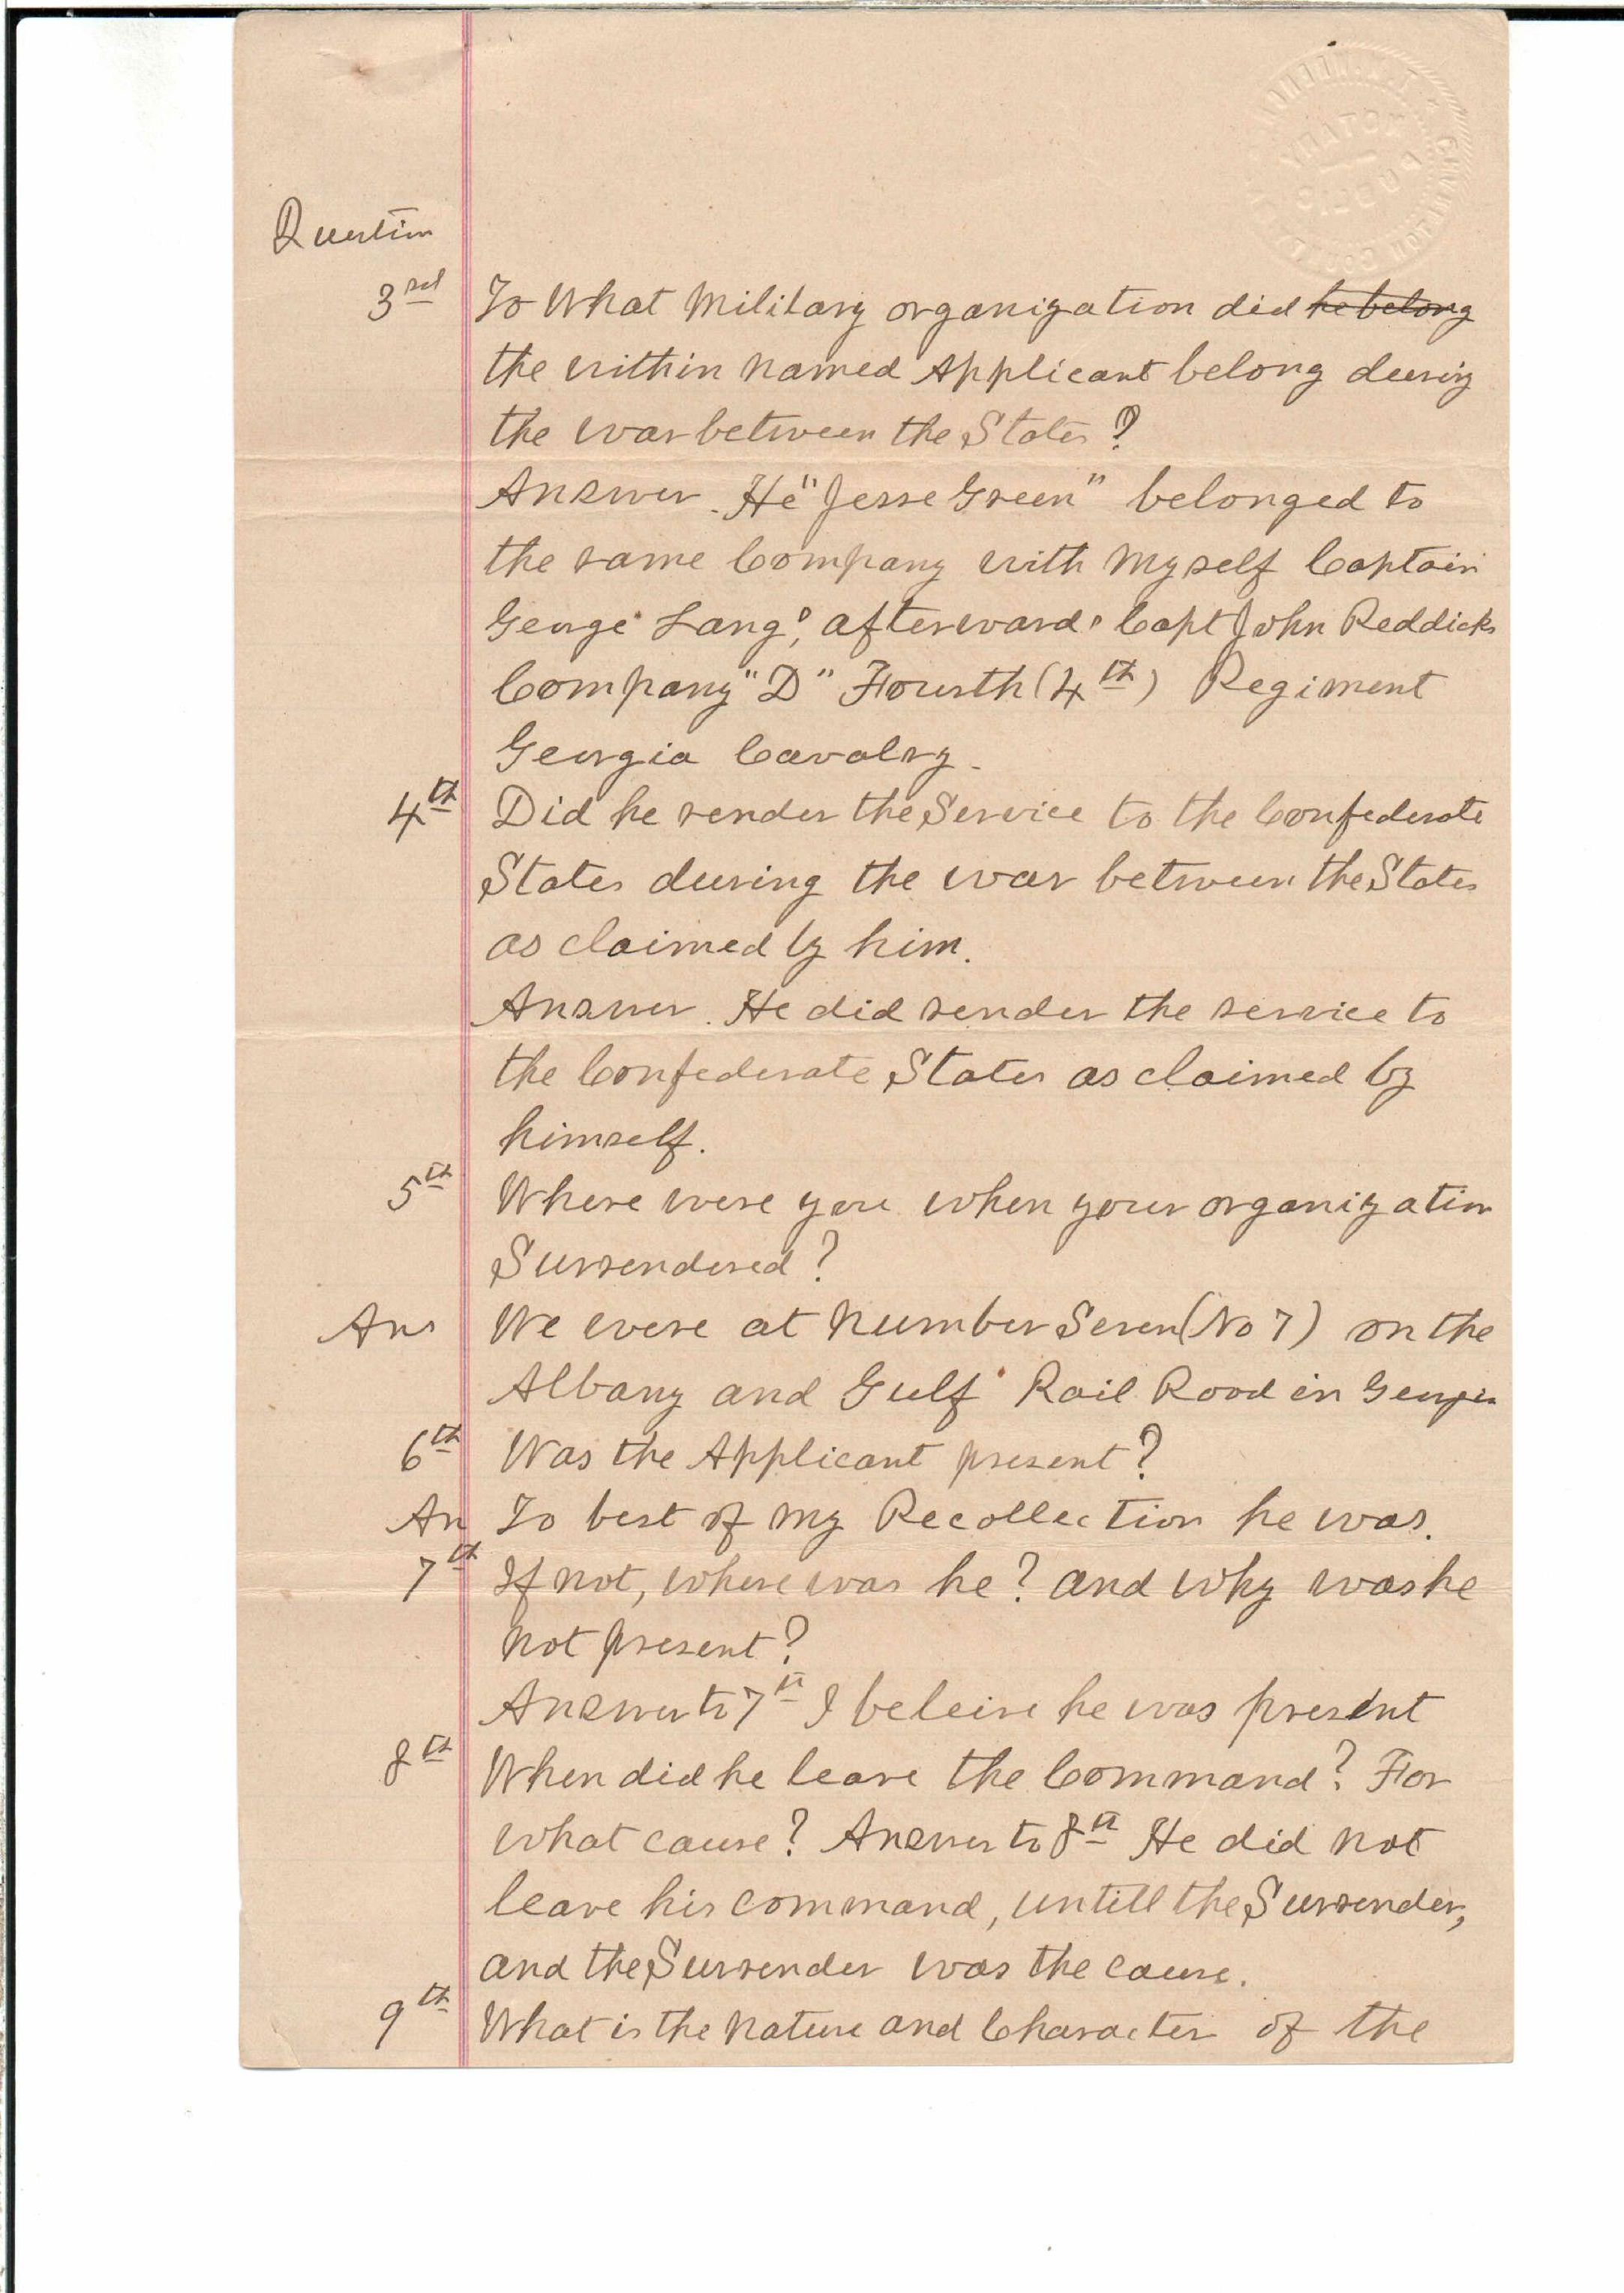 NOTARY
PUBLIC
Question
3rd To What Military organization did he belong
the within named Applicant belong during
the war between the States?
Answer. He "Jesse Green" belonged to
the same Company with Myself Captain
George Lang's, afterwards Capt John Reddicks
Company "D" Fourth (4th) Regiment
Georgia Cavalry.
4th Did he render the Service to the Confederate
States during the war between the States
as claimed by him.
Answer. He did render the service to
the Confederate States as claimed by
himself.
5th Where were you when your organization
Surrendered?
Ans We were at Number Seven (No 7) on the
Albany and Gulf Rail Road in Georgia
6th Was the Applicant present?
An To best of my Recollection he was.
7th If not, where was he? and why was he
not present?
Answer to 7th I beleive he was present
8th When did he leave the Command? For
what cause? Answer to 8th He did not
leave his command, untill the Surrender,
and the Surrender was the cause.
9th What is the Nature and Character of the